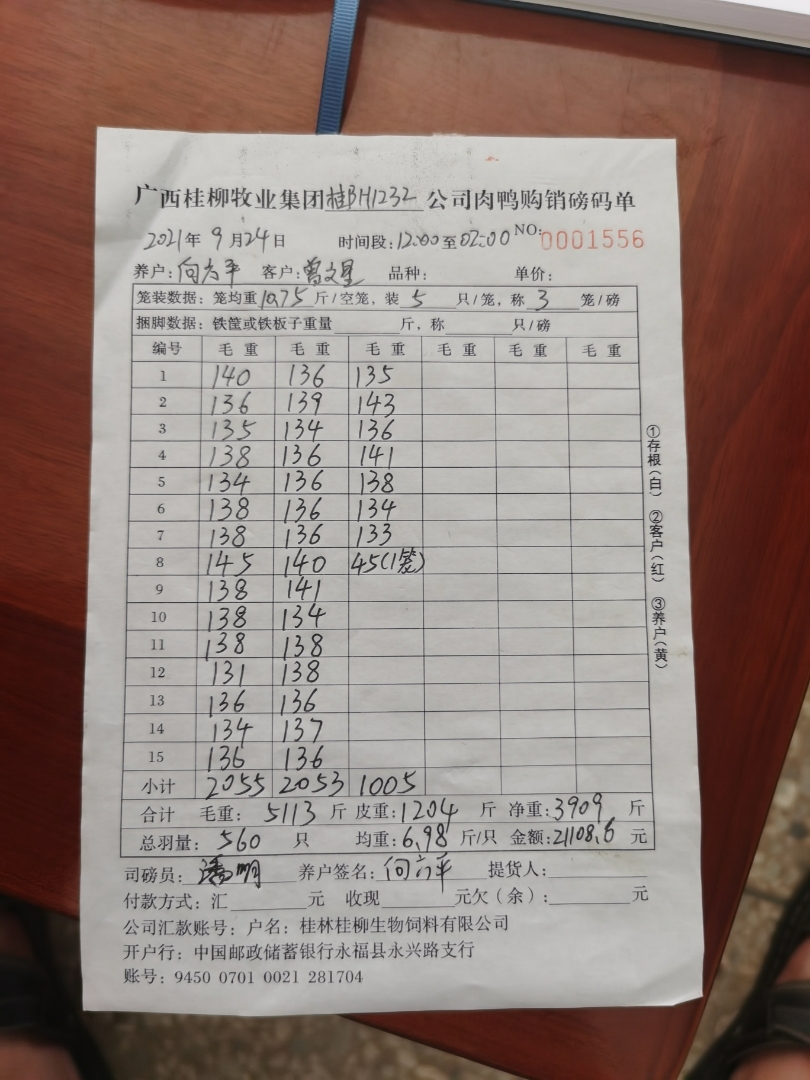 广西桂柳牧业集团桂BH1232公司肉鸭购销磅码单
2021年9月24日 时间段:12:00至02:00 NO:0001556
养户:向六平 客户:曾文星 品种: 单价:
笼装数据:笼均重10.75斤/空笼,装5只/笼,称3笼/磅
捆脚数据:铁筐或铁板子重量 斤,称 只/磅
编号 毛重 毛重 毛重 毛重 毛重 毛重
1 140 136 135
2 136 139 143
3 135 134 136
4 138 136 141
5 134 136 138
6 138 136 134
7 138 136 133
8 145 140 45(1笼)
9 138 141
10 138 134
11 138 138
12 131 138
13 136 136
14 134 137
15 136 136
小计 2055 2053 1005
合计 毛重:5113斤 皮重:1204斤 净重:3909斤
总羽量:560只 均重:6.98斤/只 金额:21108.6元
司磅员:潘明 养户签名:向六平 提货人:
付款方式:汇 元 收现 元欠(余): 元
公司汇款账号:户名:桂林桂柳生物饲料有限公司
开户行:中国邮政储蓄银行永福县永兴路支行
账号:9450 0701 0021 281704
①存根(白) ②客户(红) ③养户(黄)